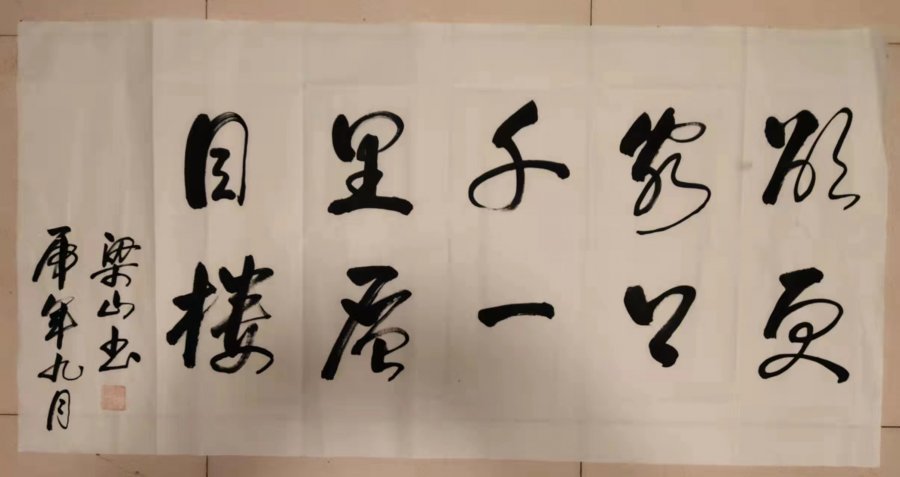 欲窮千里目
更上一層楼
梁山书
虎年九月